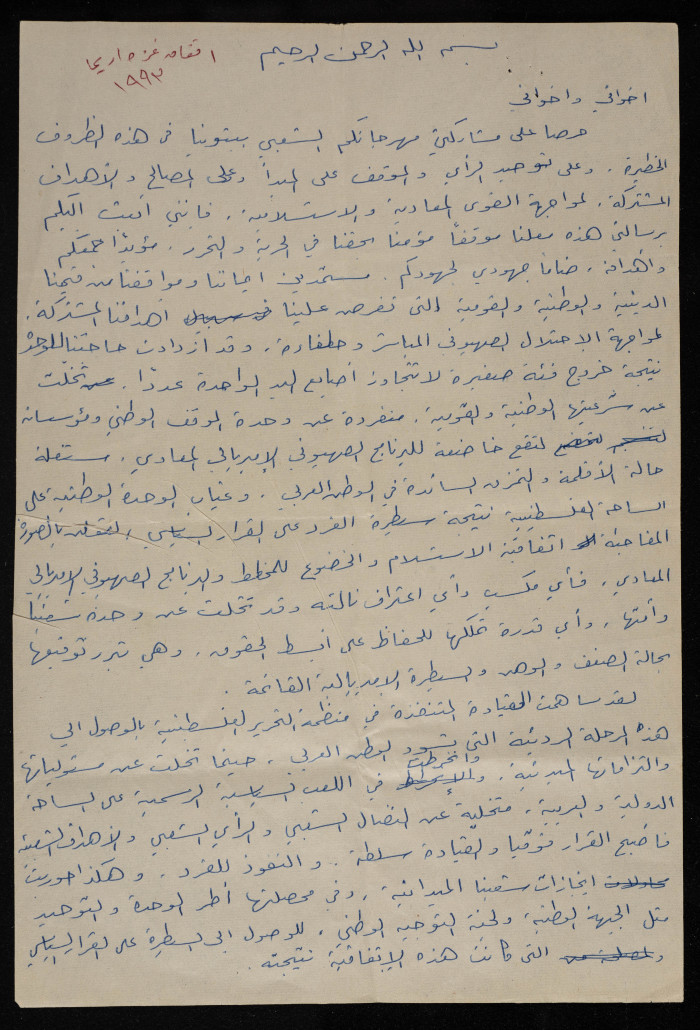 بسم الله الرحمن الرحيم
اتفاق غزه اريحا
١٩٩٣
اخواتي واخواني
حرصا على مشاركتي مهرجانكم الشعبي ببتونيا في هذه الظروف
الخطيرة. وعلى توحيد الرأي والموقف على المبدأ وعلى المصالح والأهداف
المشتركة. لمواجهة القوى المعادية والاستسلامية. فإنني أبعث اليكم
برسالتي هذه معلنا موقفاً مؤمنا بحقنا في الحرية والتحرر. مؤيداً جمعكم
وأهدافه، ضاما جهودي لجهودكم. مستمدين ايماننا ومواقفنا من قيمنا
الدينية والوطنية والقومية التي تفرض علينا أهدافنا المشتركة.
لمواجهة الاحتلال الصهيوني المباشر وحلفاءه. وقد ازدادت حاجتنا للوحدة
نتيجة خروج فئة صغيرة لا تتجاوز أصابع اليد الواحدة عددًا. تخلّت
عن شرعيتها الوطنية والقومية. منفردة عن وحدة الموقف الوطني ومؤسساته
لتقع خاضعة للبرنامج الصهيوني الإمبريالي المعادي. مستغلة
حالة الأقلمة والتمزق السائدة في الوطن العربي. وغياب الوحدة الوطنية على
الساحة الفلسطينية نتيجة سيطرة الفرد على القرار السياسي، بالصورة
المفاجئة اتفاقية الاستسلام والخضوع للمخطط والبرنامج الصهيوني الإمبريالي
المعادي. فأي مكسب وأي اعتراف نالته وقد تخلت عن وحدة شعبنا
وأمتها. وأي قدرة تملكها للحفاظ على ابسط الحقوق. وهي تبرر توقيعها
بحالة الضعف والوهن والسيطرة الامبريالية القائمة.
لقد ساهمت القيادة المتنفذة في منظمة التحرير الفلسطينية بالوصول الى
هذه المرحلة الرديئة التي تسود الوطن العربي. حينما تخلت عن مسئولياتها
والتزاماتها المبدئية. وانخرطت في اللعب السياسية الرسمية على الساحة
الدولية والعربية. متخلية عن النضال الشعبي والرأي الشعبي والأهداف الشعبية
فأصبح القرار فوقيا والقيادة سلطة. والنفوذ للفرد. وهكذا حوربت
انجازات شعبنا الميدانية. وفي محصلتها أطر الوحدة والتوحيد
مثل الجبهة الوطنية ولجنة التوجيه الوطني. للوصول الى السيطرة على القرار السياسي
التي كانت هذه الاتفاقية نتيجته.